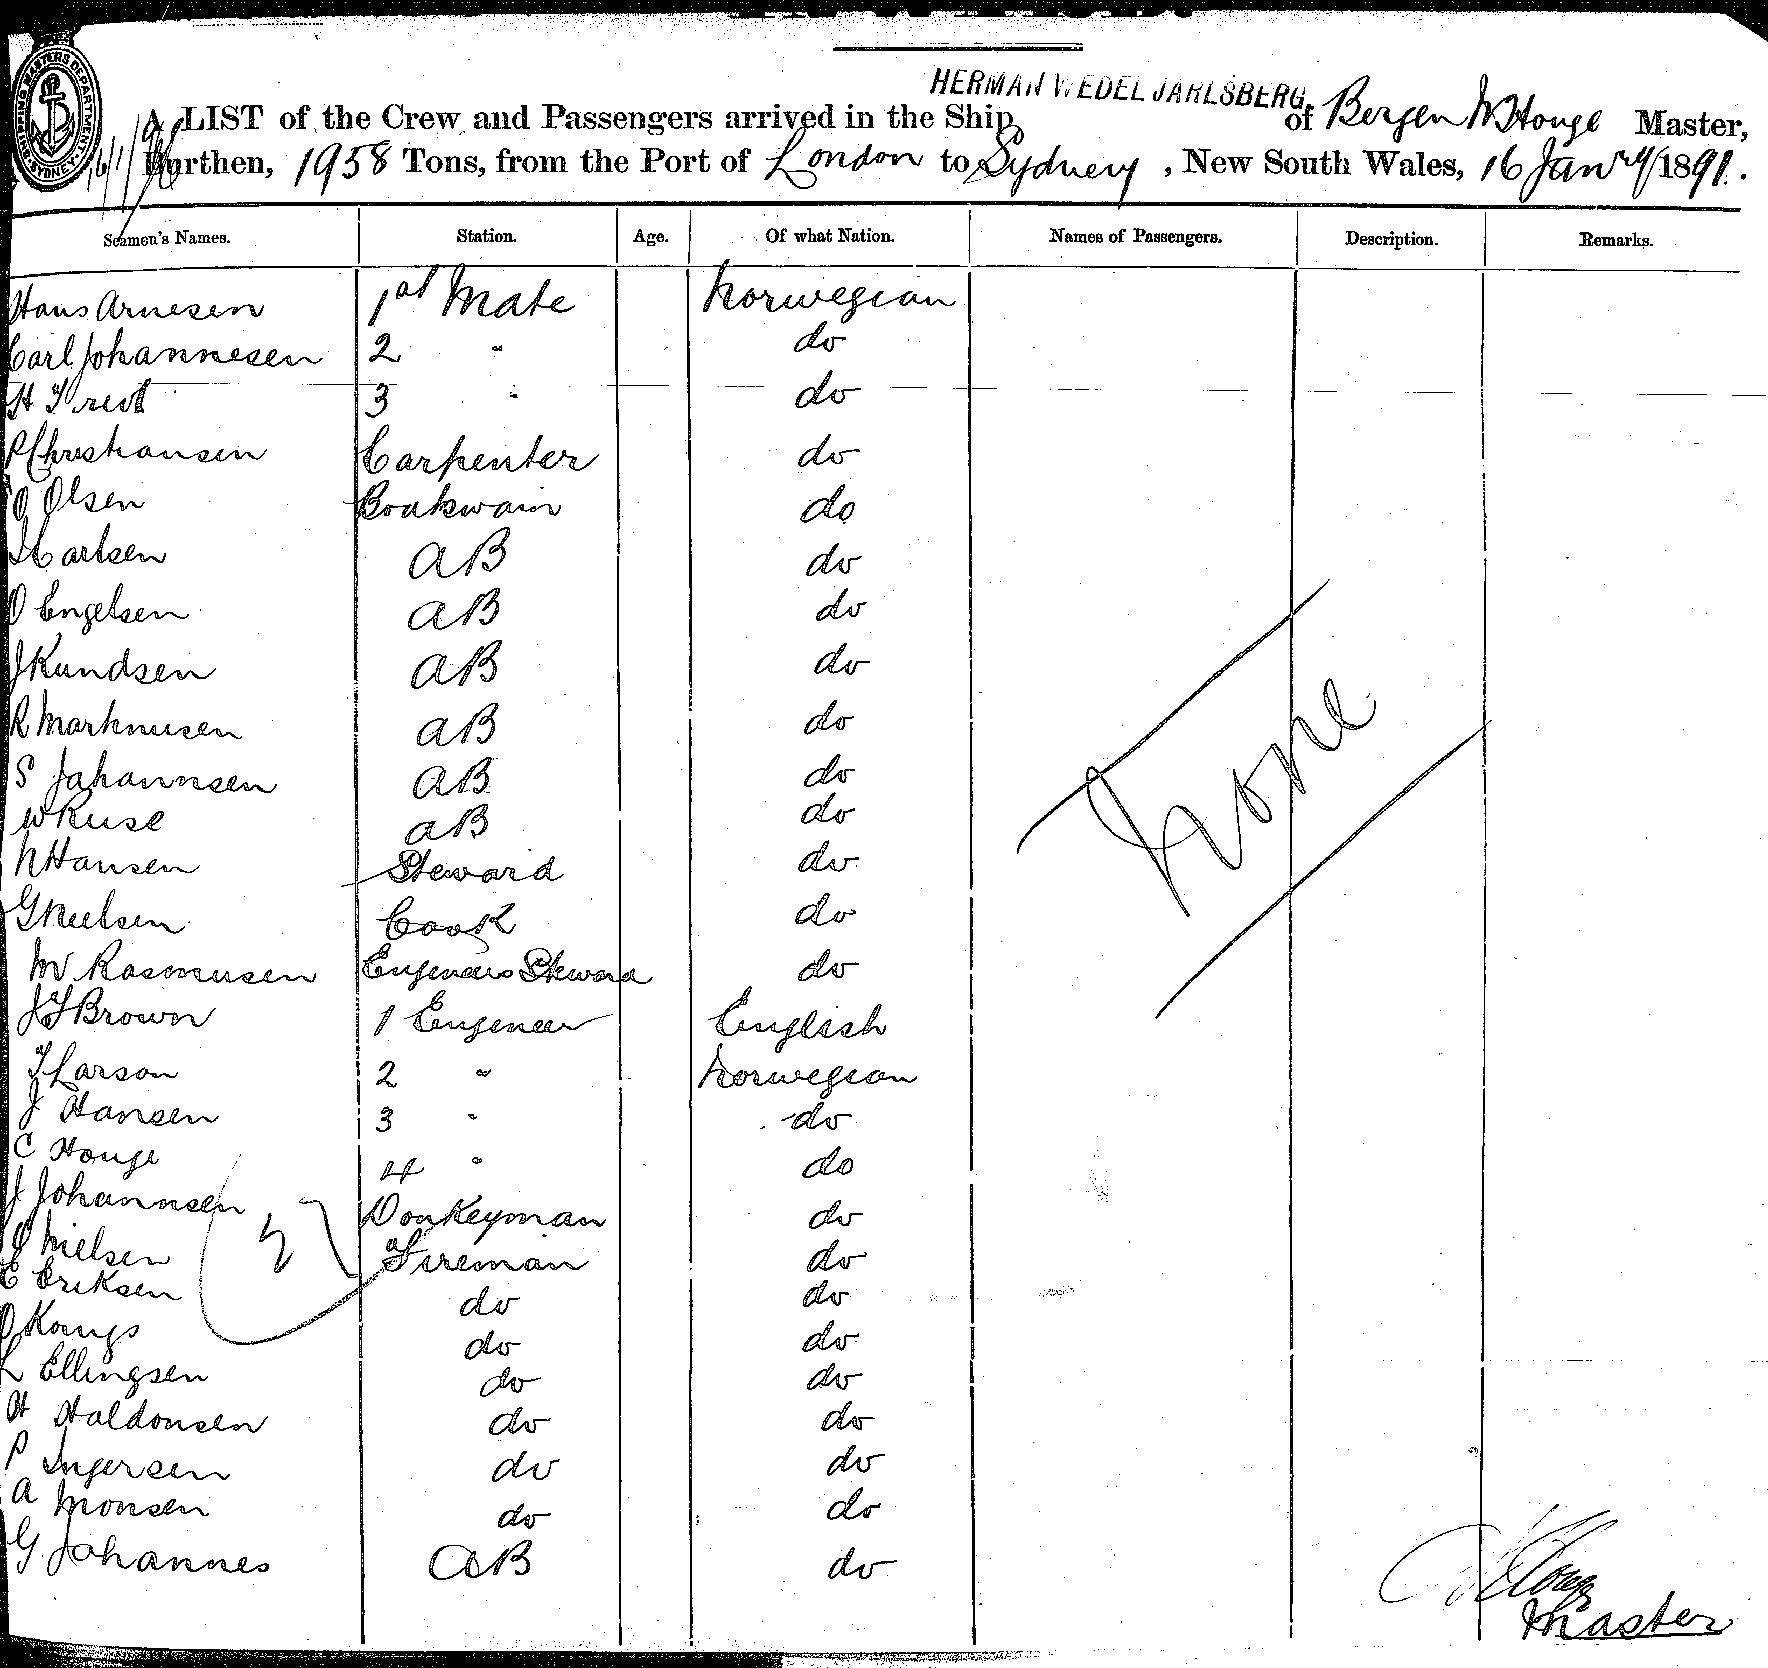 SHIPPING MASTERS DEPARTMENT SYDNEY
16/1/91
HERMAN WEDEL JARLSBERG
A LIST of the Crew and Passengers arrived in the Ship, of Bergen Houge Master,
Burthen, 1958 Tons, from the Port of London to Sydney, New South Wales, 16 Jany/1891.
Seamen's Names. Station. Age. Of what Nation. Names of Passengers. Description. Remarks.
Hans Arnesen 1st Mate Norwegian
Carl Johannesen 2 " do
H 3 " do
P Christiansen Carpenter do
O Olsen Boatswain do
Carlsen AB do
O Engelsen AB do
J Kundsen AB do
R Marknusen AB do
S Jahannsen AB do
W Kuse AB do
N Hansen Steward do
G Neelsen Cook do
M Rasmusen Engeneers Steward do
J F Brown 1 Engeneer English
T Larson 2 " Norwegian
J Hansen 3 " do
C Houge 4 " do
J Johannsen Donkeyman do
Nielsen Fireman do
E Eriksen do do
O Kongs do do
L Ellingsen do do
H Haldonsen do do
P Ingersen do do
A Monsen do do
G Johannes AB do
None
Houge
Master